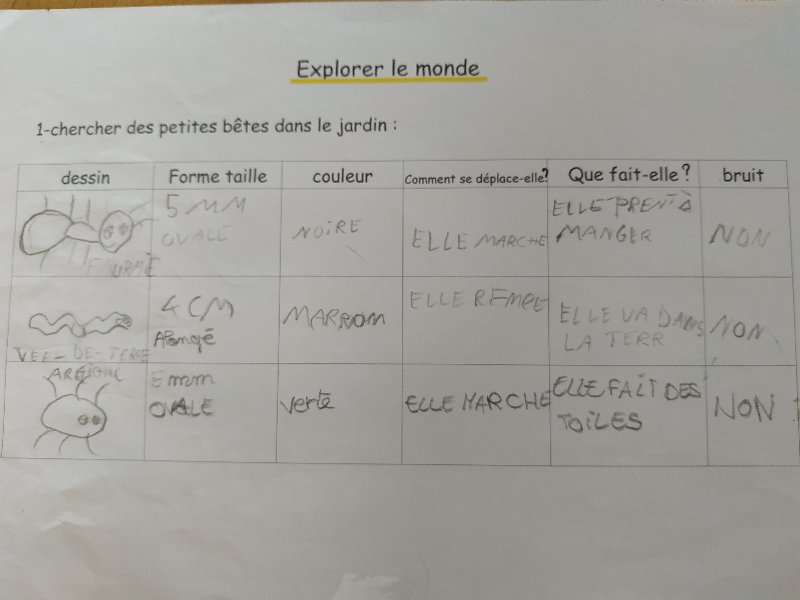 Explorer le monde
1-chercher des petites bêtes dans le jardin :
dessin Forme taille couleur Comment se déplace-elle? Que fait-elle? bruit
5 MM
OVALE
FOURMIE
NOIRE
ELLE MARCHE
ELLE PRENT À
MANGER
NON
4 CM
Alongé
VEE-DE-TERE
MARROM
ELLE REMPE
ELLE VA DANS
LA TERR
NON
AREIGNE
5 mm
OVALE
verte
ELLE MARCHE
ELLE FAIT DES
TOILES
NON